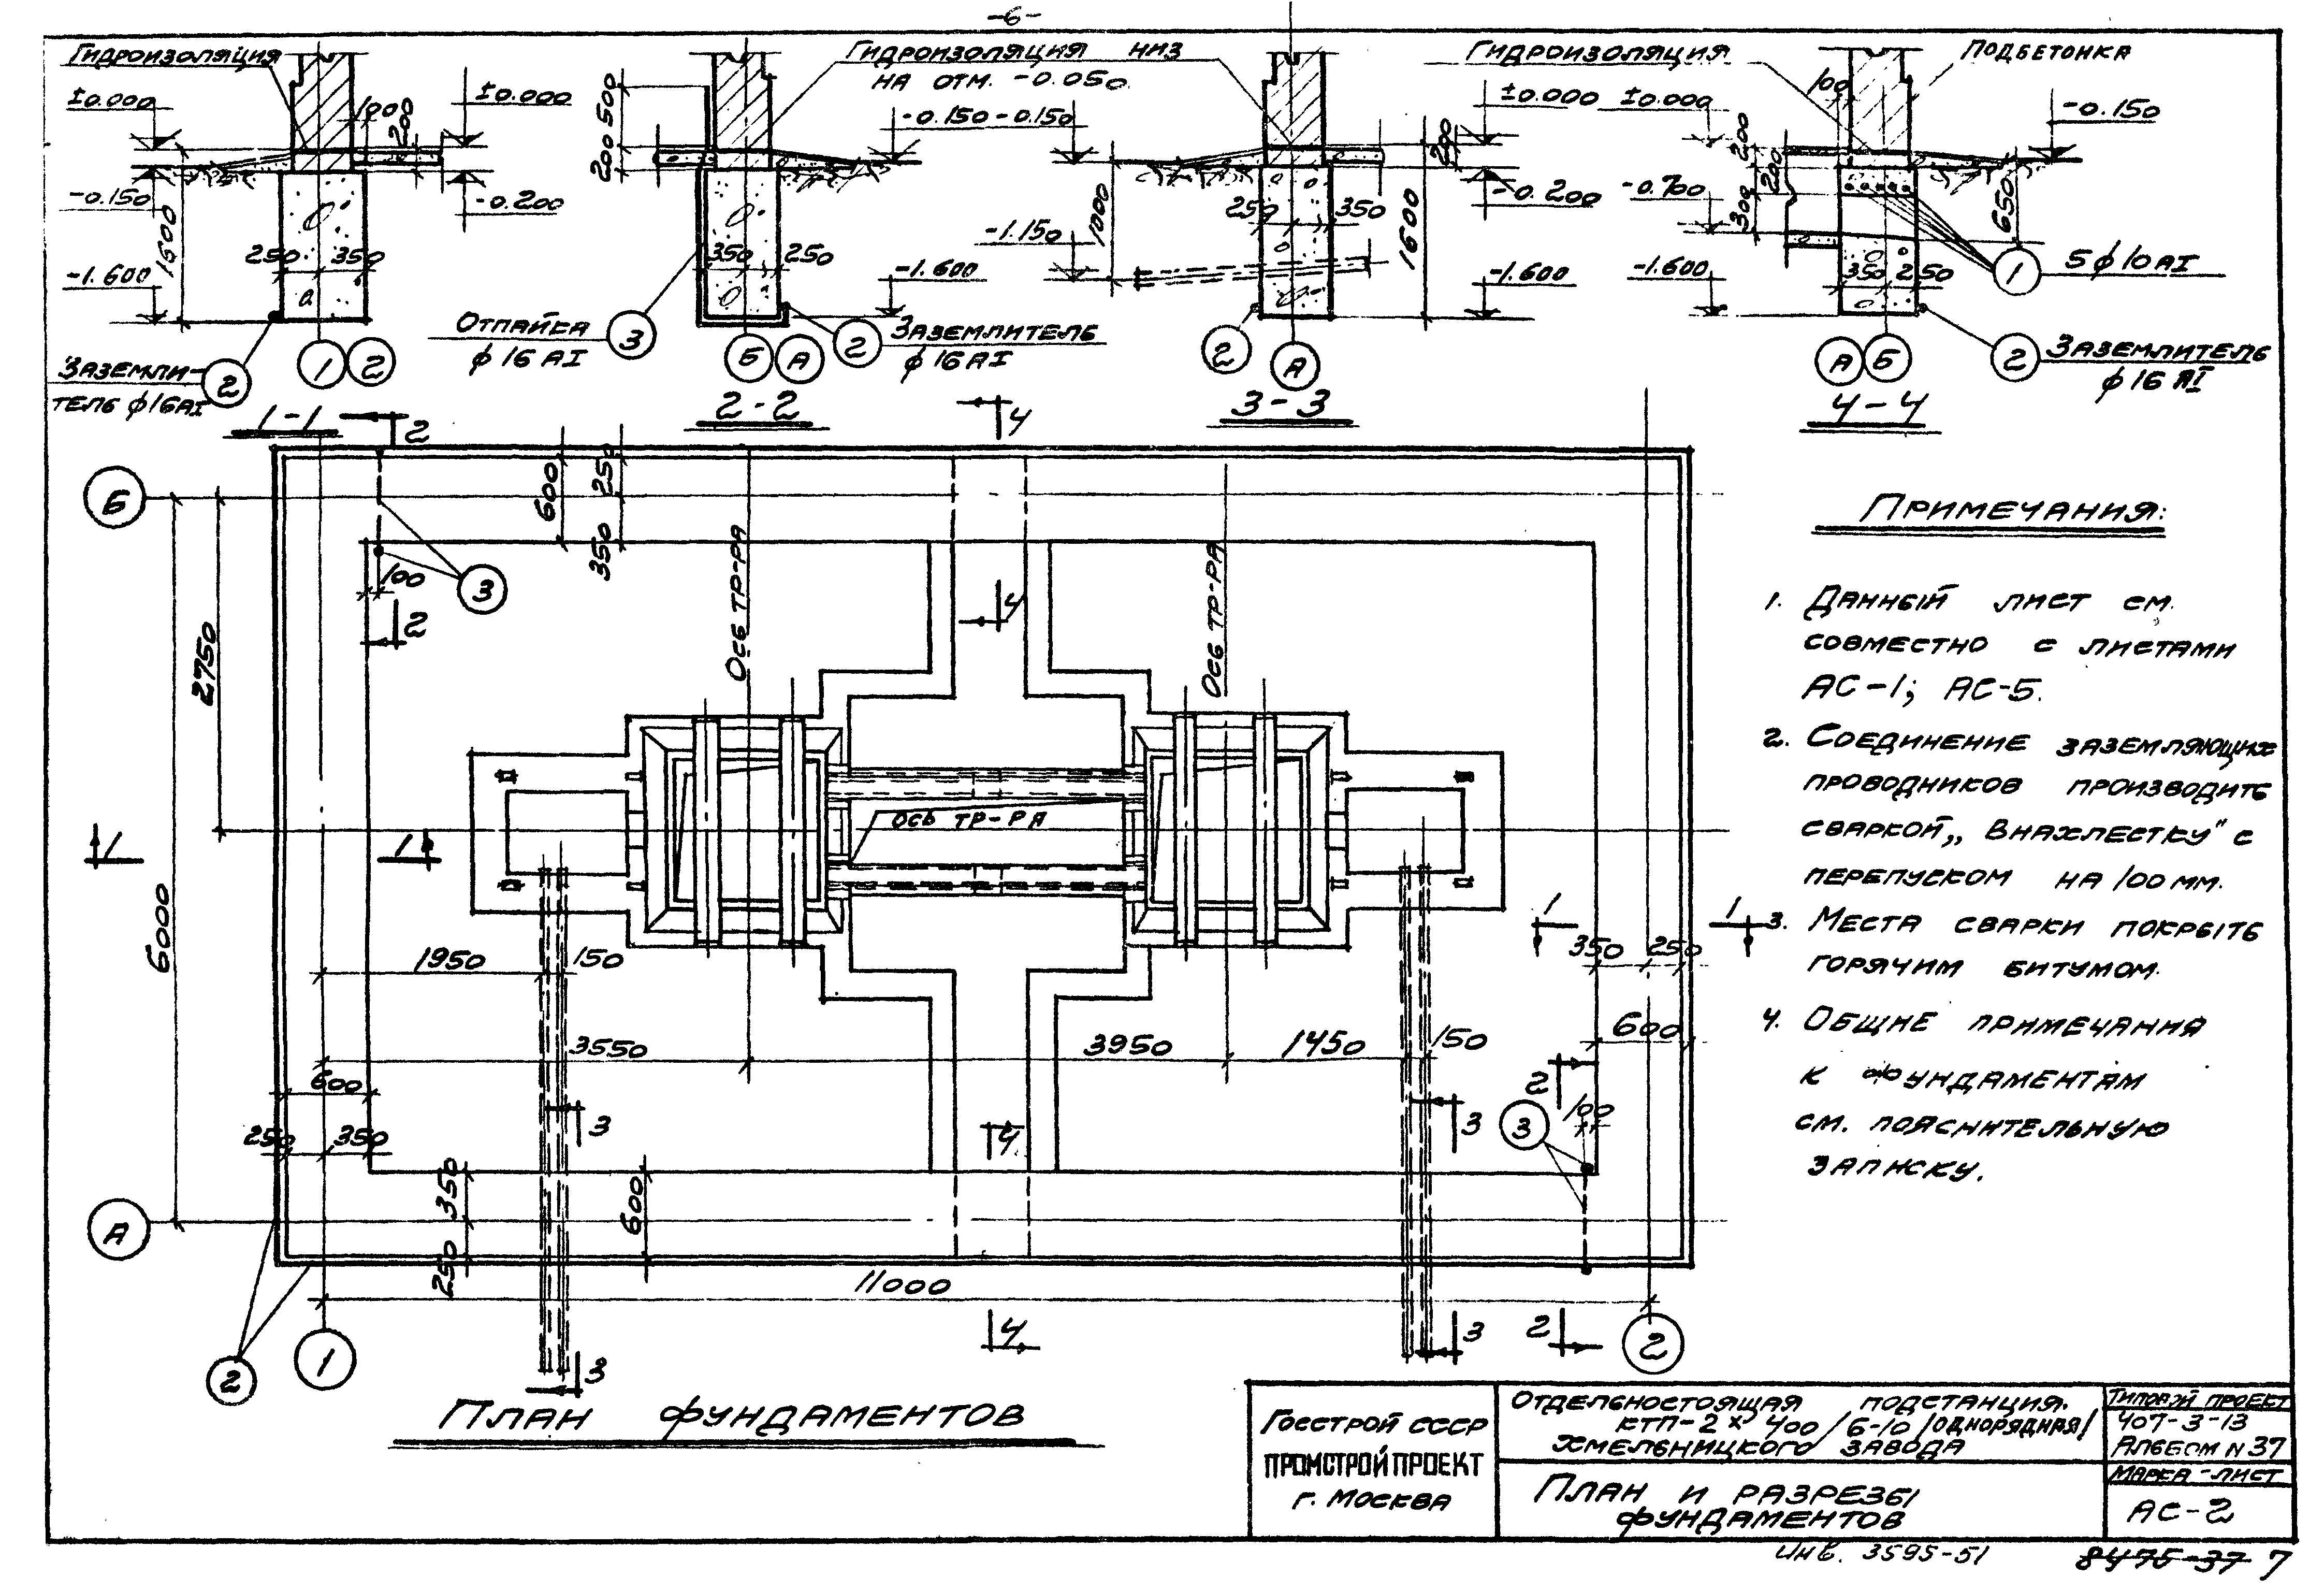 -6-
Гидроизоляция
±0.000
100
200
±0.000
-0.150
-0.200
1600
250
350
-1.600
Заземли-
тель ф16АI
2
1
2
1-1
Гидроизоляция низ
на отм. -0.050
500
200
-0.150
350
250
-1.600
Отпайка
ф 16 АI
3
2
Заземлитель
ф 16 АI
Б
А
2-2
-0.150
1000
-1.150
250
350
±0.000
200
-0.200
1600
-1.600
2
А
3-3
Гидроизоляция
Подбетонка
100
±0.000
-0.150
200
200
-0.700
300
650
-1.600
350
250
1
5ф10АI
2
Заземлитель
ф 16 АI
А
Б
4-4
2
4
Б
600
250
350
100
3
2
4
Ось тр-ра
Ось тр-ра
2750
6000
ось тр-ра
1
1
1
1
350
250
1950
150
3550
3950
1450
150
600
600
250
350
3
4
3
2
3
100
А
350
250
600
11000
2
1
3
4
3
2
2
План фундаментов
Примечания:
1. Данный лист см.
совместно с листами
АС-1; АС-5.
2. Соединение заземляющих
проводников производить
сваркой „Внахлестку" с
перепуском на 100 мм.
3. Места сварки покрыть
горячим битумом.
4. Общие примечания
к фундаментам
см. пояснительную
записку.
Госстрой СССР
ПРОМСТРОЙПРОЕКТ
г. Москва
Отдельностоящая подстанция.
КТП-2х400/6-10/однорядная/
Хмельницкого завода
План и разрезы
фундаментов
Типовой проект
407-3-13
Альбом N 37
Марка-лист
АС-2
Инв. 3595-51
8475-37 7